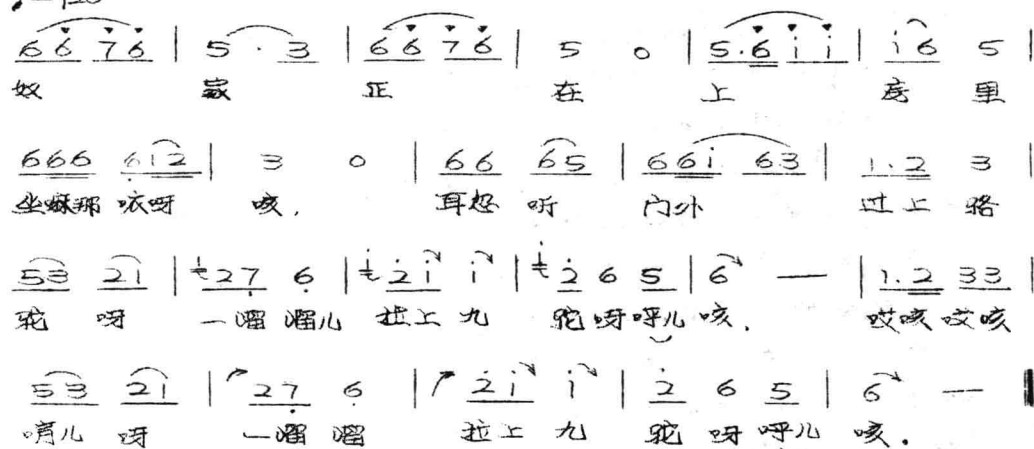 6 6 7 6 | 5 · 3 | 6 6 7 6 | 5 0 | 5·6 i i | i 6 5 |
奴 家 正 在 上 房 里
666 612 | 3 0 | 66 65 | 66i 63 | 1.2 3 |
坐嘛那 咴呀 咳， 耳忽 听 门外 过上 骆
53 21 | 27 6 | 2i i | 2 6 5 | 6 — | 1.2 33 |
驼 呀 一溜 溜儿 拉上 九 驼 呀 呼儿 咳． 哎咳 哎咳
53 21 | 27 6 | 2i i | 2 6 5 | 6 —
唷儿 呀 一溜 溜 拉上 九 驼 呀 呼儿 咳．